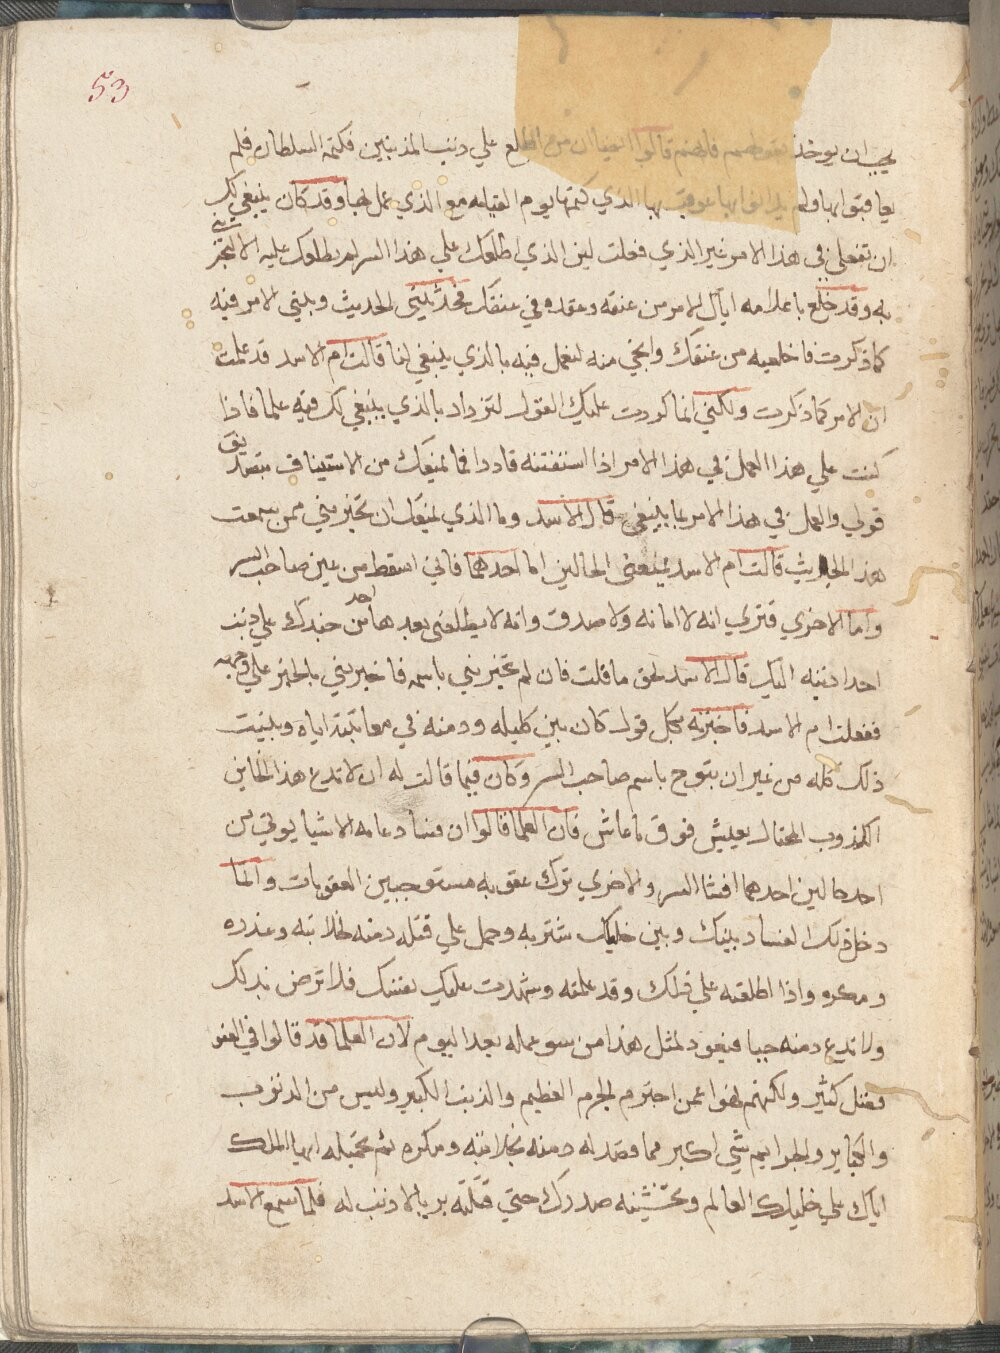 53
يجب ان يوخذ بقولهم فانهم قالوا ايضا ان من اطلع علي ذنب المذنبين فكتمه السلطان فلم
يعاقبوا بها ولم عوقب بها الذي كتمها يوم القيامه مع الذي عمل بها وقد كان ينبغي لك
ان تفعلي في هذا الامر غير الذي فعلت لين الذي اطلعك علي هذا السر لم يطلعك عليه الا لتخبريني
به وقد خلع باعلامه اياك الامر من عنقه وعقده في عنقك فحدثيني الحديث وبيني الامر فيه
كما ذكرت فاخلعيه من عنقك وانجي منه لنعمل فيه بالذي ينبغي لنا قالت ام الاسد قد علمت
ان الامر كما ذكرت ولكني انما كررت عليك القول لتزداد بالذي ينبغي لك فيه علما فاذا
كنت علي هذا العمل في هذا الامر اذا استفتنه قادرا فما يمنعك من الاستيناف بتصديق
قولي والعمل في هذا الامر بما ينبغي قال الاسد وما الذي يمنعك ان تخبريني ممن سمعت
هذا الحديث قالت ام الاسد يمنعني الحالين اما احدهما فاني اسقط من عين صاحب السر
واما الاخري فتري انه لا امانه ولا صدق وانه لا يطلعني بعدها احد من جندك علي ذنب
احد اذنبه اليك قال الاسد لحق ما قلت فان لم تخبريني باسمه فاخبريني بالخبر علي وجهه
ففعلت ام الاسد فاخبرته بكل قول كان بين كليله ودمنه في معاتبته اياه وبينت
ذلك كله من غير ان بتوح باسم صاحب السر وكان فيما قالت له ان لا تدع هذا الخاين
الكذوب المحتال يعيش فوق ما عاش فان العلما قالوا ان فساد عامه الاشيا يوتي من
احد حالين احدهما افشا السر والاخري ترك عقوبه مستوجبين العقوبات وانما
دخل ذلك الفساد بينك وبين خليلك شتربه وحمل علي قتله دمنه لخلابته وغدره
ومكره واذا اطلعته علي ذلك وقد علمته وشهدت عليك نفسك فلا ترض بذلك
ولا تدع دمنه حيا فيعود لمثل هذا من سو عمله بعد اليوم لان العلما قد قالوا في العفو
فضل كثير ولكنهم نهوا عمن اجترم الجرم العظيم والذنب الكبير وليس من الذنوب
والكباير والجرايم شي اكبر مما قصد له دمنه بخلابته ومكره ثم تحميله ايها الملك
اياك علي خليلك العالم وتخشينه صدرك حتي قتلته بريا لا ذنب له فلما سمع الاسد